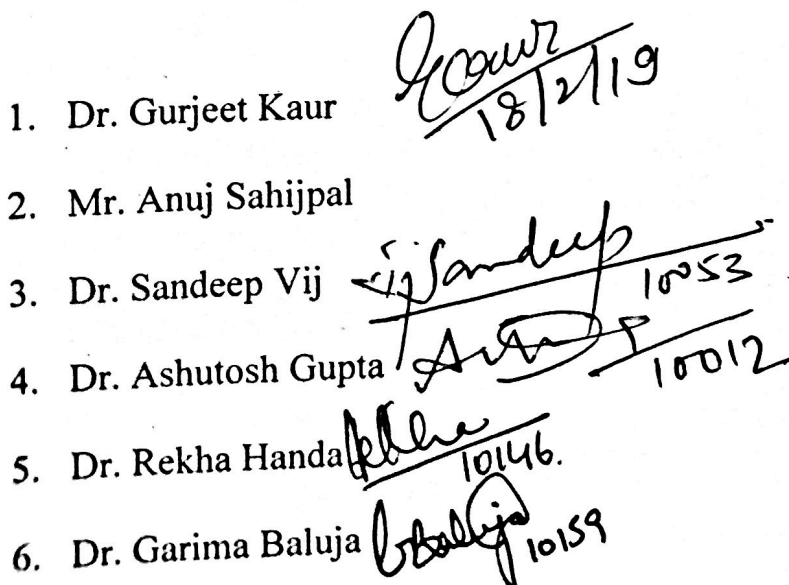 1. Dr. Gurjeet Kaur Gkaur
18/2/19
2. Mr. Anuj Sahijpal
3. Dr. Sandeep Vij Sandeep
10053
4. Dr. Ashutosh Gupta
10012
5. Dr. Rekha Handa Rekha
10146.
6. Dr. Garima Baluja GBaluja
10159